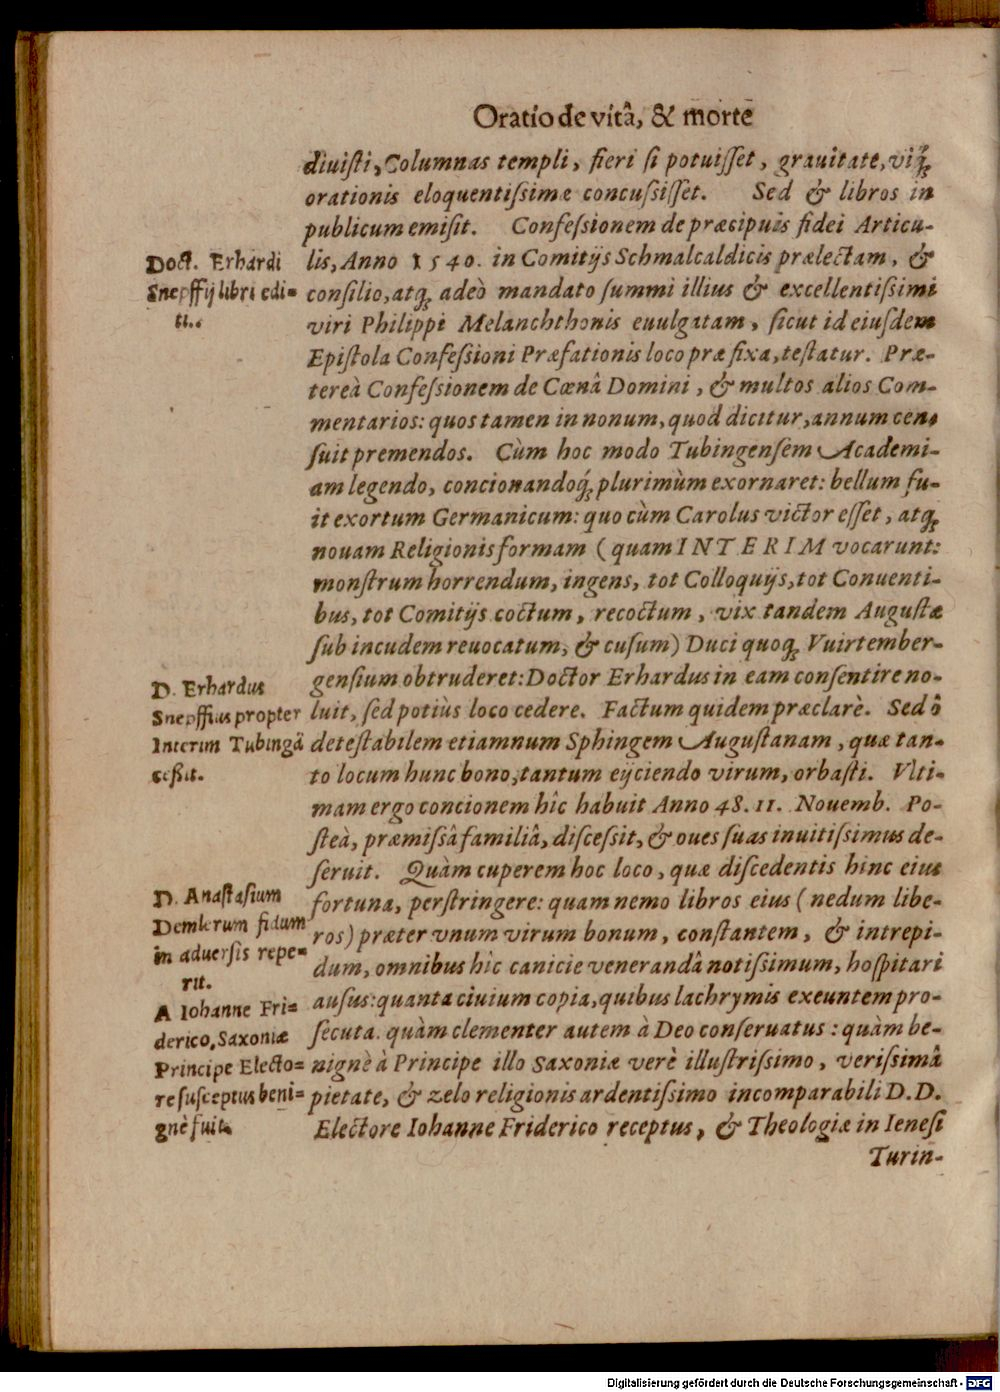 Oratio de vitâ, & morte
diuisti, Columnas templi, fieri si potuisset, grauitate, viq́;
orationis eloquentissimæ concussisset. Sed & libros in
publicum emisit. Confessionem de præcipuis fidei Articu-
Doct. Erhardi
Snepffij libri edi=
ti.
lis, Anno 1540. in Comitijs Schmalcaldicis prælectam, &
consilio, atq; adeò mandato summi illius & excellentissimi
viri Philippi Melanchthonis euulgatam, sicut id eiusdem
Epistola Confessioni Præfationis loco præfixa, testatur. Præ-
tereà Confessionem de Cœnâ Domini, & multos alios Com-
mentarios: quos tamen in nonum, quod dicitur, annum cen-
suit premendos. Cùm hoc modo Tubingensem Academi-
am legendo, concionandoq́; plurimùm exornaret: bellum fu-
it exortum Germanicum: quo cùm Carolus victor esset, atq;
nouam Religionis formam (quam INTERIM vocarunt:
monstrum horrendum, ingens, tot Colloquijs, tot Conuenti-
bus, tot Comitijs coctum, recoctum, vix tandem Augustæ
sub incudem reuocatum, & cusum) Duci quoq; Vuirtember-
D. Erhardus
Snepffius propter
Interim Tubingâ
cessit.
gensium obtruderet: Doctor Erhardus in eam consentire no-
luit, sed potiùs loco cedere. Factum quidem præclarè. Sed ô
detestabilem etiamnum Sphingem Augustanam, quæ tan-
to locum hunc bono, tantum eijciendo virum, orbasti. Vlti-
mam ergo concionem hîc habuit Anno 48. 11. Nouemb. Po-
steà, præmissâ familiâ, discessit, & oues suas inuitissimus de-
seruit. Quàm cuperem hoc loco, quæ discedentis hinc eius
D. Anastasium
Demlerum fidum
in aduersis repe=
rit.
fortuna, perstringere: quam nemo libros eius (nedum libe-
ros) præter vnum virum bonum, constantem, & intrepi-
dum, omnibus hîc canicie venerandâ notissimum, hospitari
A Iohanne Fri=
derico, Saxoniæ
Principe Electo=
re susceptus beni=
gnè fuit.
ausus: quanta ciuium copia, quibus lachrymis exeuntem pro-
secuta. quàm clementer autem à Deo conseruatus: quàm be-
nignè à Principe illo Saxoniæ verè illustrissimo, verissimâ
pietate, & zelo religionis ardentissimo incomparabili D. D.
Electore Iohanne Friderico receptus, & Theologiæ in Ienesi
Turin-
Digitalisierung gefördert durch die Deutsche Forschungsgemeinschaft - DFG